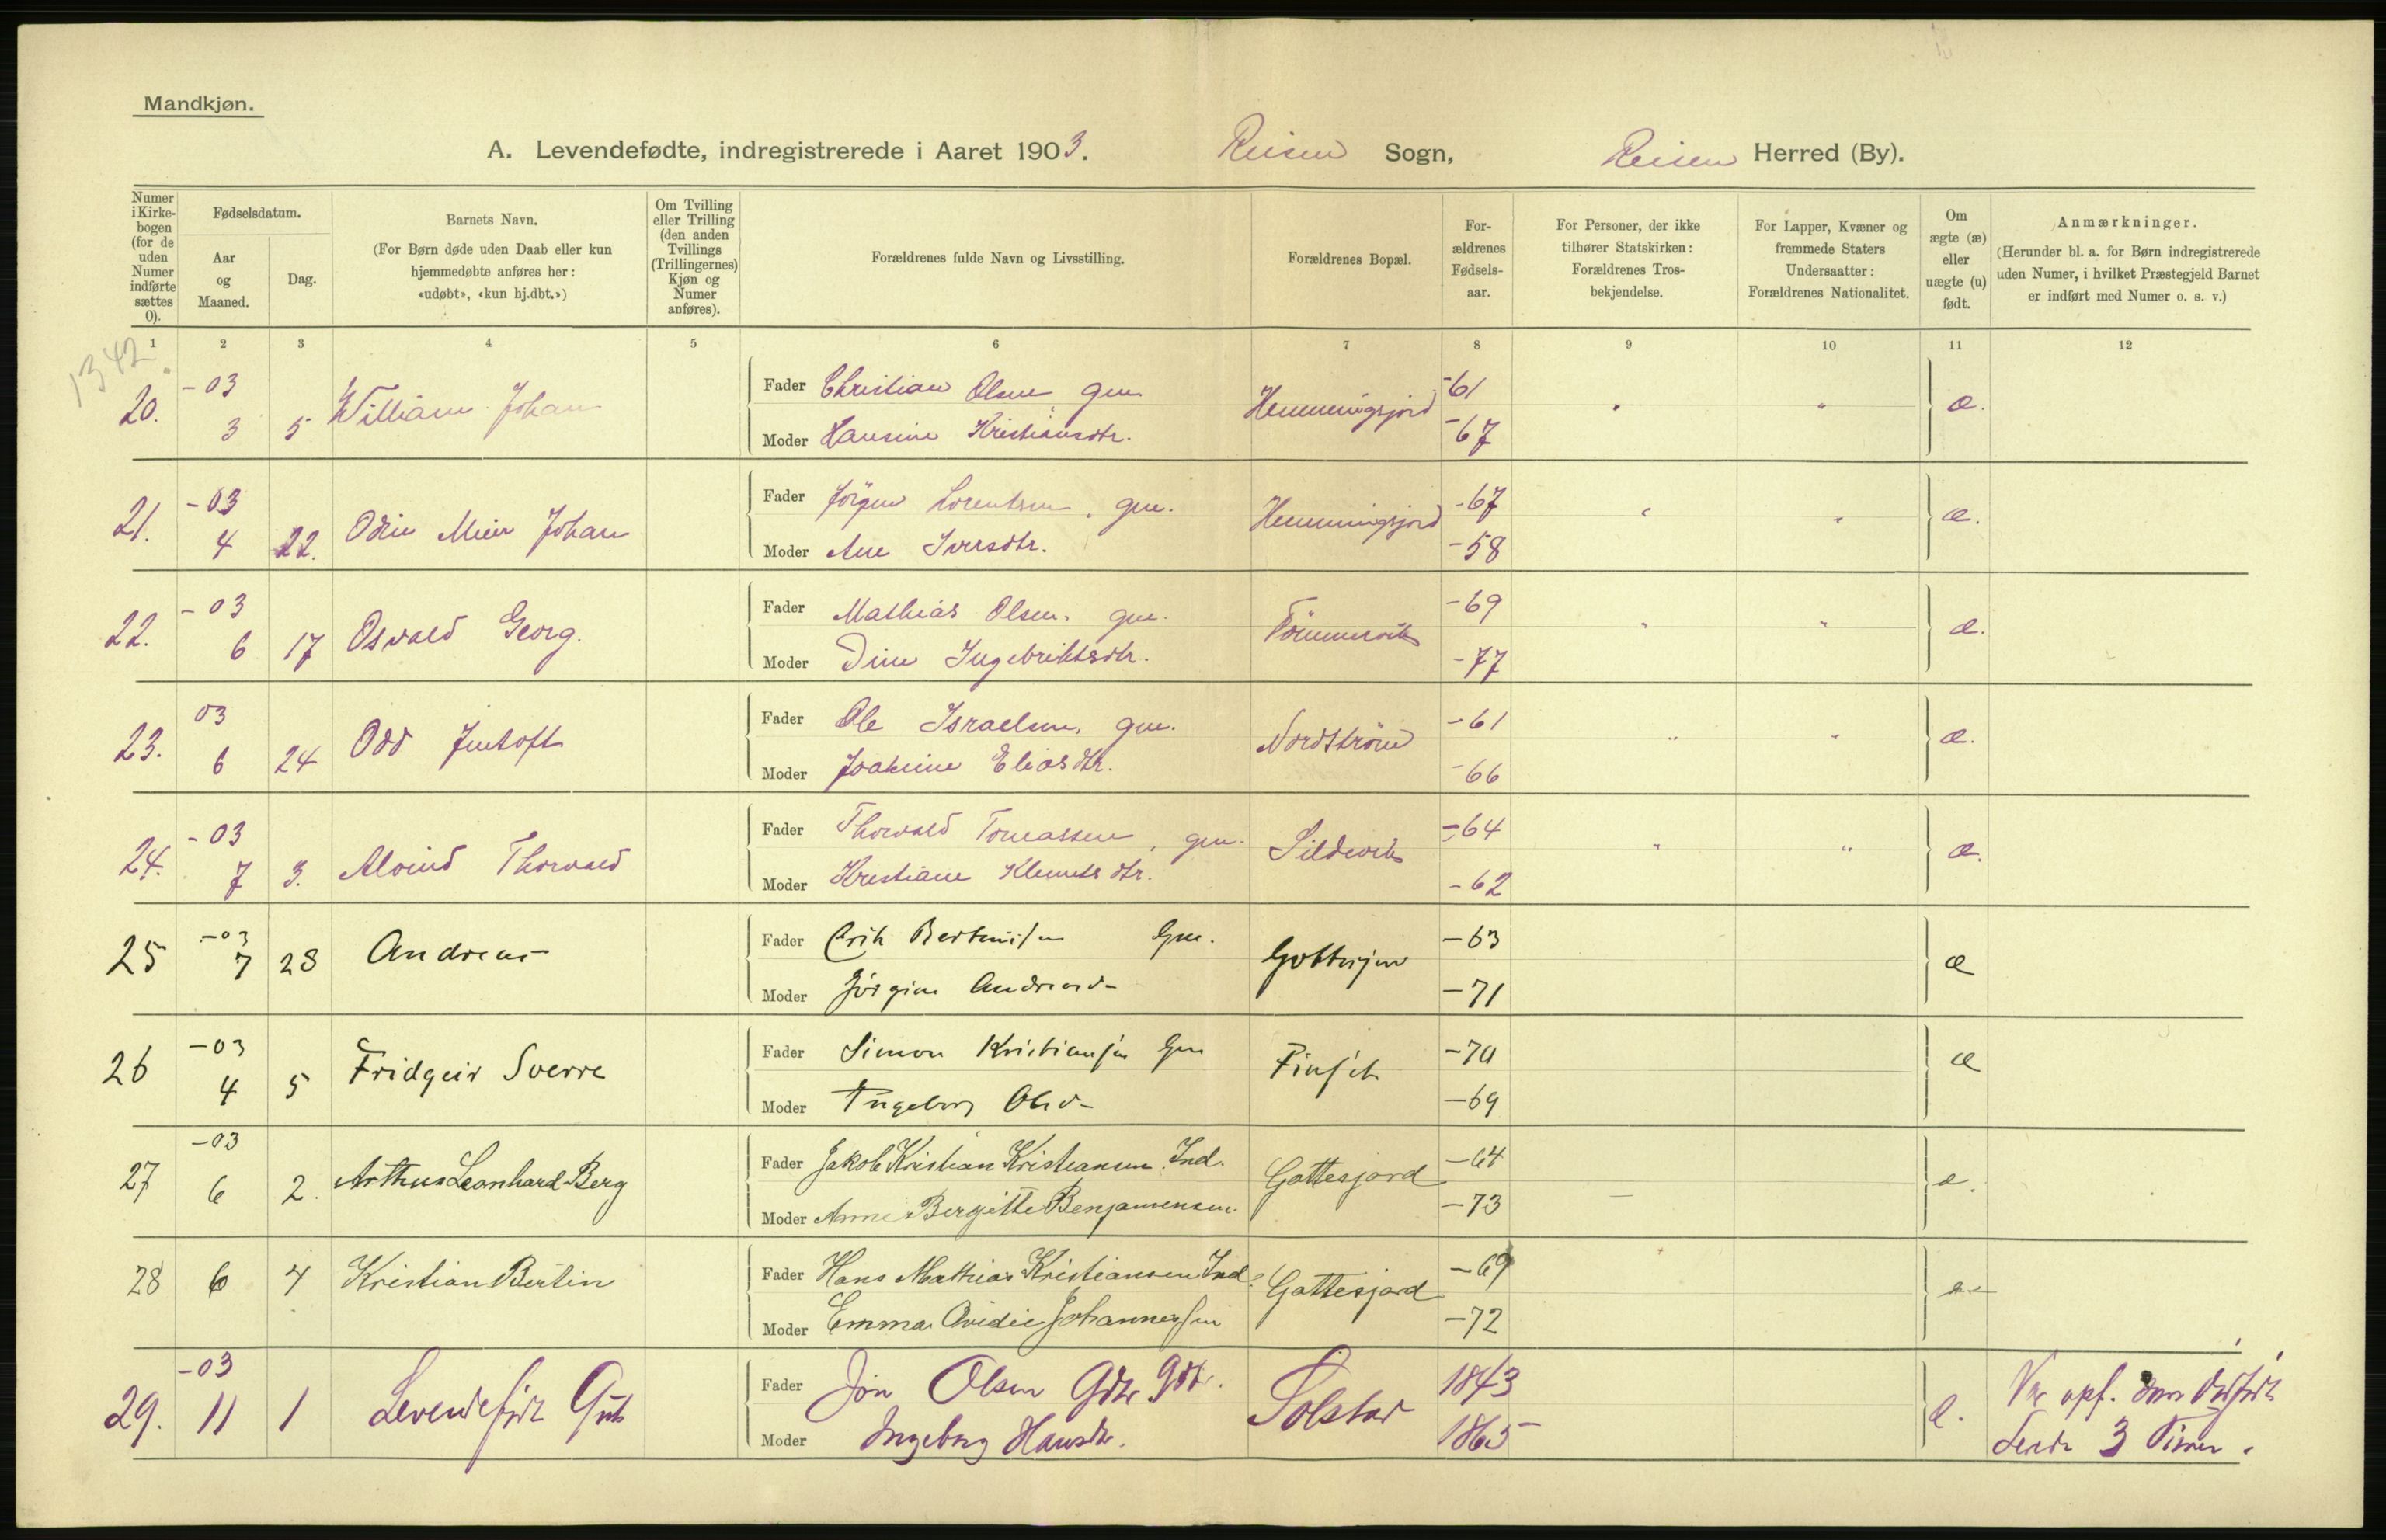 Mandkjøn.
A. Levendefødte, indregistrerede i Aaret 1903. Reisen Sogn, Reisen Herred (By).
Numer i Kirkebogen (for de uden Numer indførte sættes 0).
Fødselsdatum.
Aar og Maaned.
Dag.
Barnets Navn.
(For Børn døde uden Daab eller kun hjemmedøbte anføres her: «udøbt», «kun hj.dbt.»)
Om Tvilling eller Trilling (den anden Tvillings (Trillingernes) Kjøn og Numer anføres).
Forældrenes fulde Navn og Livsstilling.
Forældrenes Bopæl.
Forældrenes Fødselsaar.
For Personer, der ikke tilhører Statskirken: Forældrenes Trosbekjendelse.
For Lapper, Kvæner og fremmede Staters Undersaatter: Forældrenes Nationalitet.
Om ægte (æ) eller uægte (u) født.
Anmærkninger.
(Herunder bl. a. for Børn indregistrerede uden Numer, i hvilket Præstegjeld Barnet er indført med Numer o. s. v.)
1 2 3 4 5 6 7 8 9 10 11 12
1342
20. -03 3 5 William Johan
Fader Christian Olsen, gm. Hemmingsjord -61 æ.
Moder Hansine Kristiansdtr. -67
21. -03 4 22. Odin Meier Johan
Fader Jörgen Lorentsen, gm. Hemmingsjord -67 æ.
Moder Ane Iversdtr. -58
22. -03 6 17 Osvald Georg.
Fader Mathias Olsen, gm. Tömmervik -69 æ.
Moder Dine Ingebriktsdtr. -77
23. 03 6 24 Odd Jentoft
Fader Ole Israelsen, gm. Nordström -61 æ.
Moder Joakime Eliasdtr. -66
24. -03 7 3. Alvind Thorvald
Fader Thorvald Tomassen, gm. Sildevik -64 æ.
Moder Kristiane Klemetsdtr. -62
25 -03 7 28 Andreas
Fader Erik Bertheussen Gm. Gottesjord -63 æ
Moder Jörgine Andreasd- -71
26 -03 4 5 Fridgeir Sverre
Fader Simon Kristiansen Gm Finset -70 æ
Moder Ingeborg Olsd- -69
27 -03 6 2. Arthur Leonhard Berg
Fader Jakob Kristian Kristiansen. Ind. Gottesjord -64 æ.
Moder Anne Bergitte Benjaminsen. -73
28 6 4 Kristian Bertin
Fader Hans Mathias Kristiansen Ind. Gottesjord -69 æ
Moder Emma Ovidie Johannessen -72
29. -03 11 1 Levendefödt Gut
Fader Jon Olsen Gdbr. Solstad 1843
Moder Ingeborg Hansdtr. 1865
Var opf. som dødfödt
Levde 3 Timer.